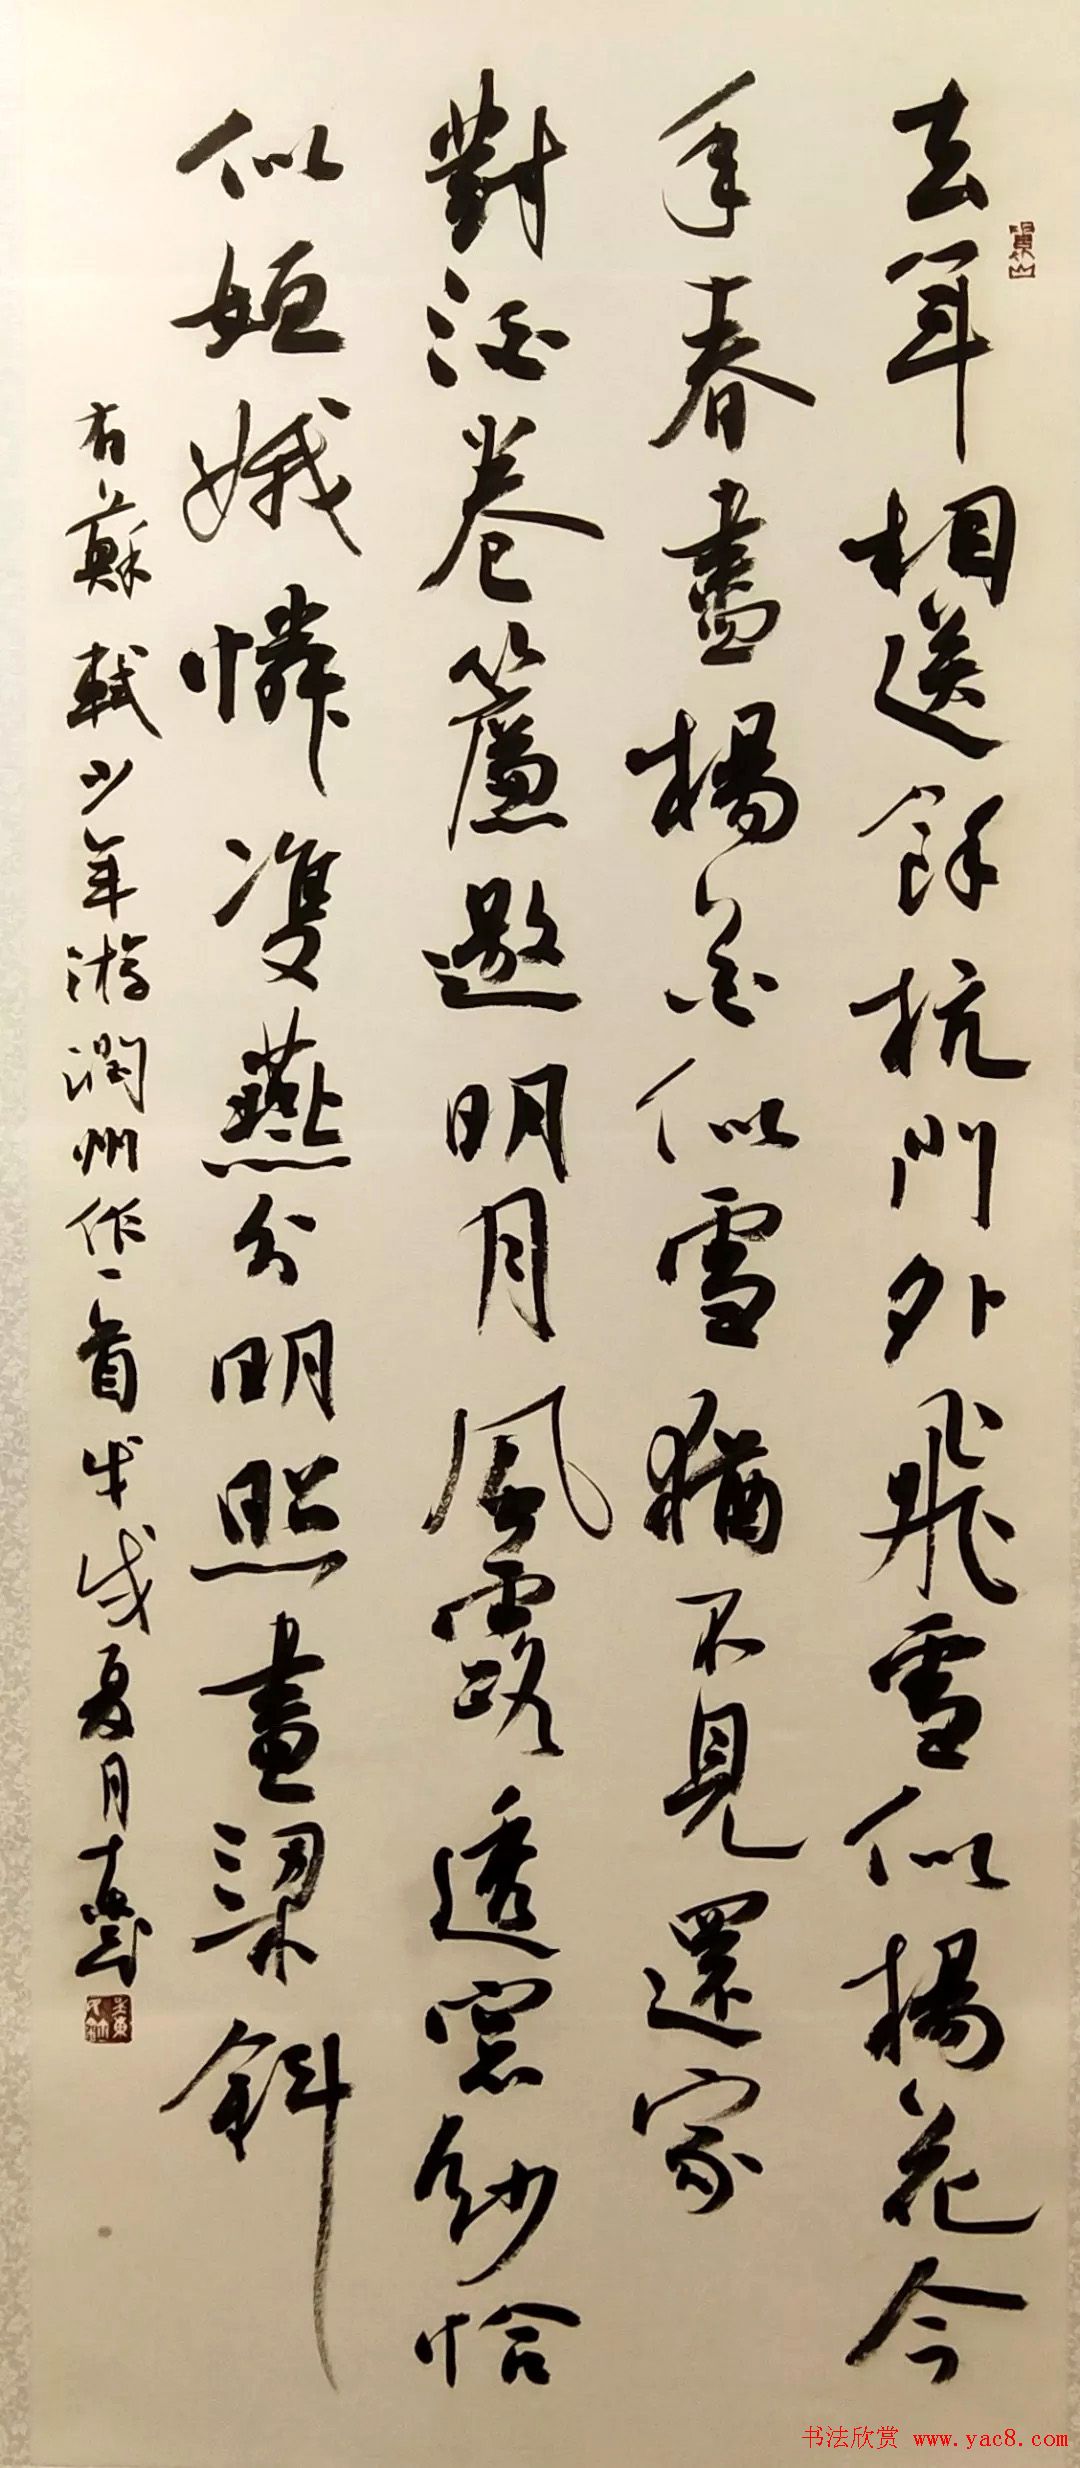 去年相送餘杭門外飛雪似楊花今
年春盡楊花似雪猶不見還家
對酒卷簾邀明月風露透窓紗恰
似姮娥憐雙燕分明照畫梁斜
右蘇軾少年游潤州作一首戊戌夏月
书法欣赏 www.yac8.com